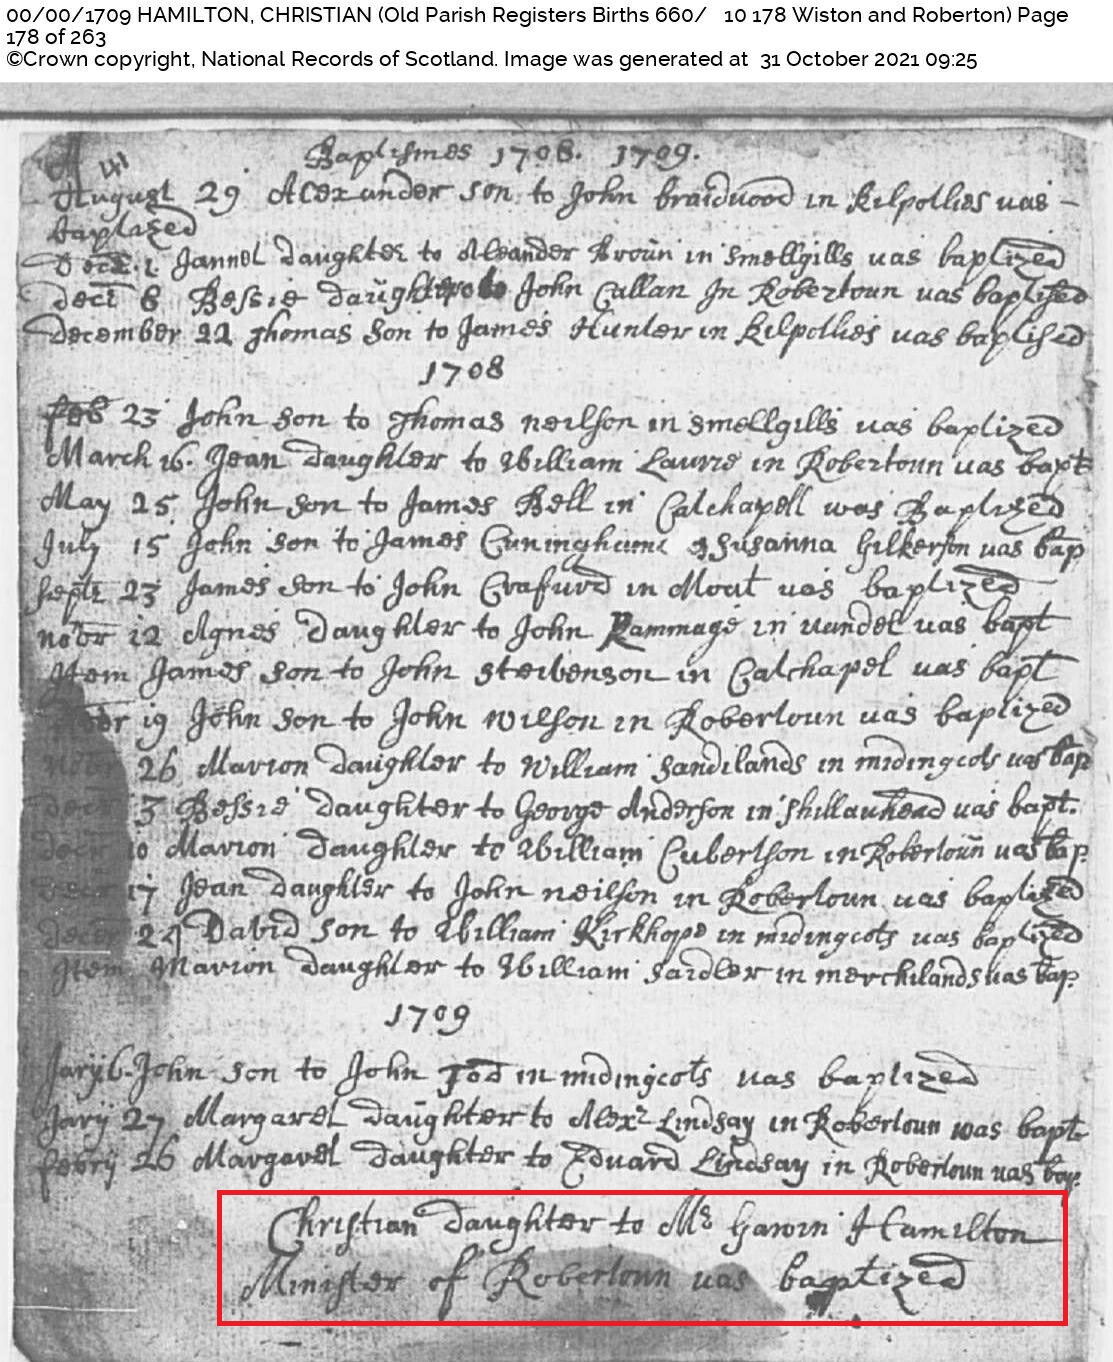 00/00/1709 HAMILTON, CHRISTIAN (Old Parish Registers Births 660/ 10 178 Wiston and Roberton) Page
178 of 263
©Crown copyright, National Records of Scotland. Image was generated at 31 October 2021 09:25
41
Baptismes 1708. 1709.
August 29 Alexander son to John braidwood in Kilpotlies uas –
baptized
Dect. 1 Jannet daughter to Aleander Broun in Smellgills uas baptized
dect 8 Bessie daughter to John Callan In Robertoun uas baptised
december 22 Thomas Son to James Hunter in Kilpotlies uas baptised
1708
feb 23 John Son to Thomas neilson in smellgills uas baptized
March 16. Jean daughter to William Laurie in Robertoun uas bapt
May 25 John son to James Bell in Calchapell was Baptized
July 15 John son to James Cuninghame & Susanna Gilkerson uas bap
septr 23 James son to John Crafurd in Moat uas baptized
nobr 12 Agnes daughter to John Rammage in uandel uas bapt
Item James son to John steivenson in Calchapel uas bapt
nobr 19 John son to John Wilson in Robertoun uas baptized
nobr 26 Marion daughter to William Sandilands in midingcots uas bap
decr 3 Bessie daughter to George Anderson in Shillauhead uas bapt.
decr 10 Marion daughter to William Cubertson in Robertoun uas bap.
decr 17 Jean daughter to John neilson in Robertoun uas baptized
decer 24 David son to William Kirkhope in midingcots uas baptized
Item Marion daughter to William Sadler in merchilands uas bap.
1709
Jarij 6. John son to John Tod in midingcots uas baptized
Jarij 27 Margaret daughter to Alexr Lindsay in Robertoun was bapt
febrij 26 Margaret daughter to Eduard Lindsay in Robertoun uas bap.
Christian daughter to Mr Gawin Hamilton
Minister of Robertoun uas baptized